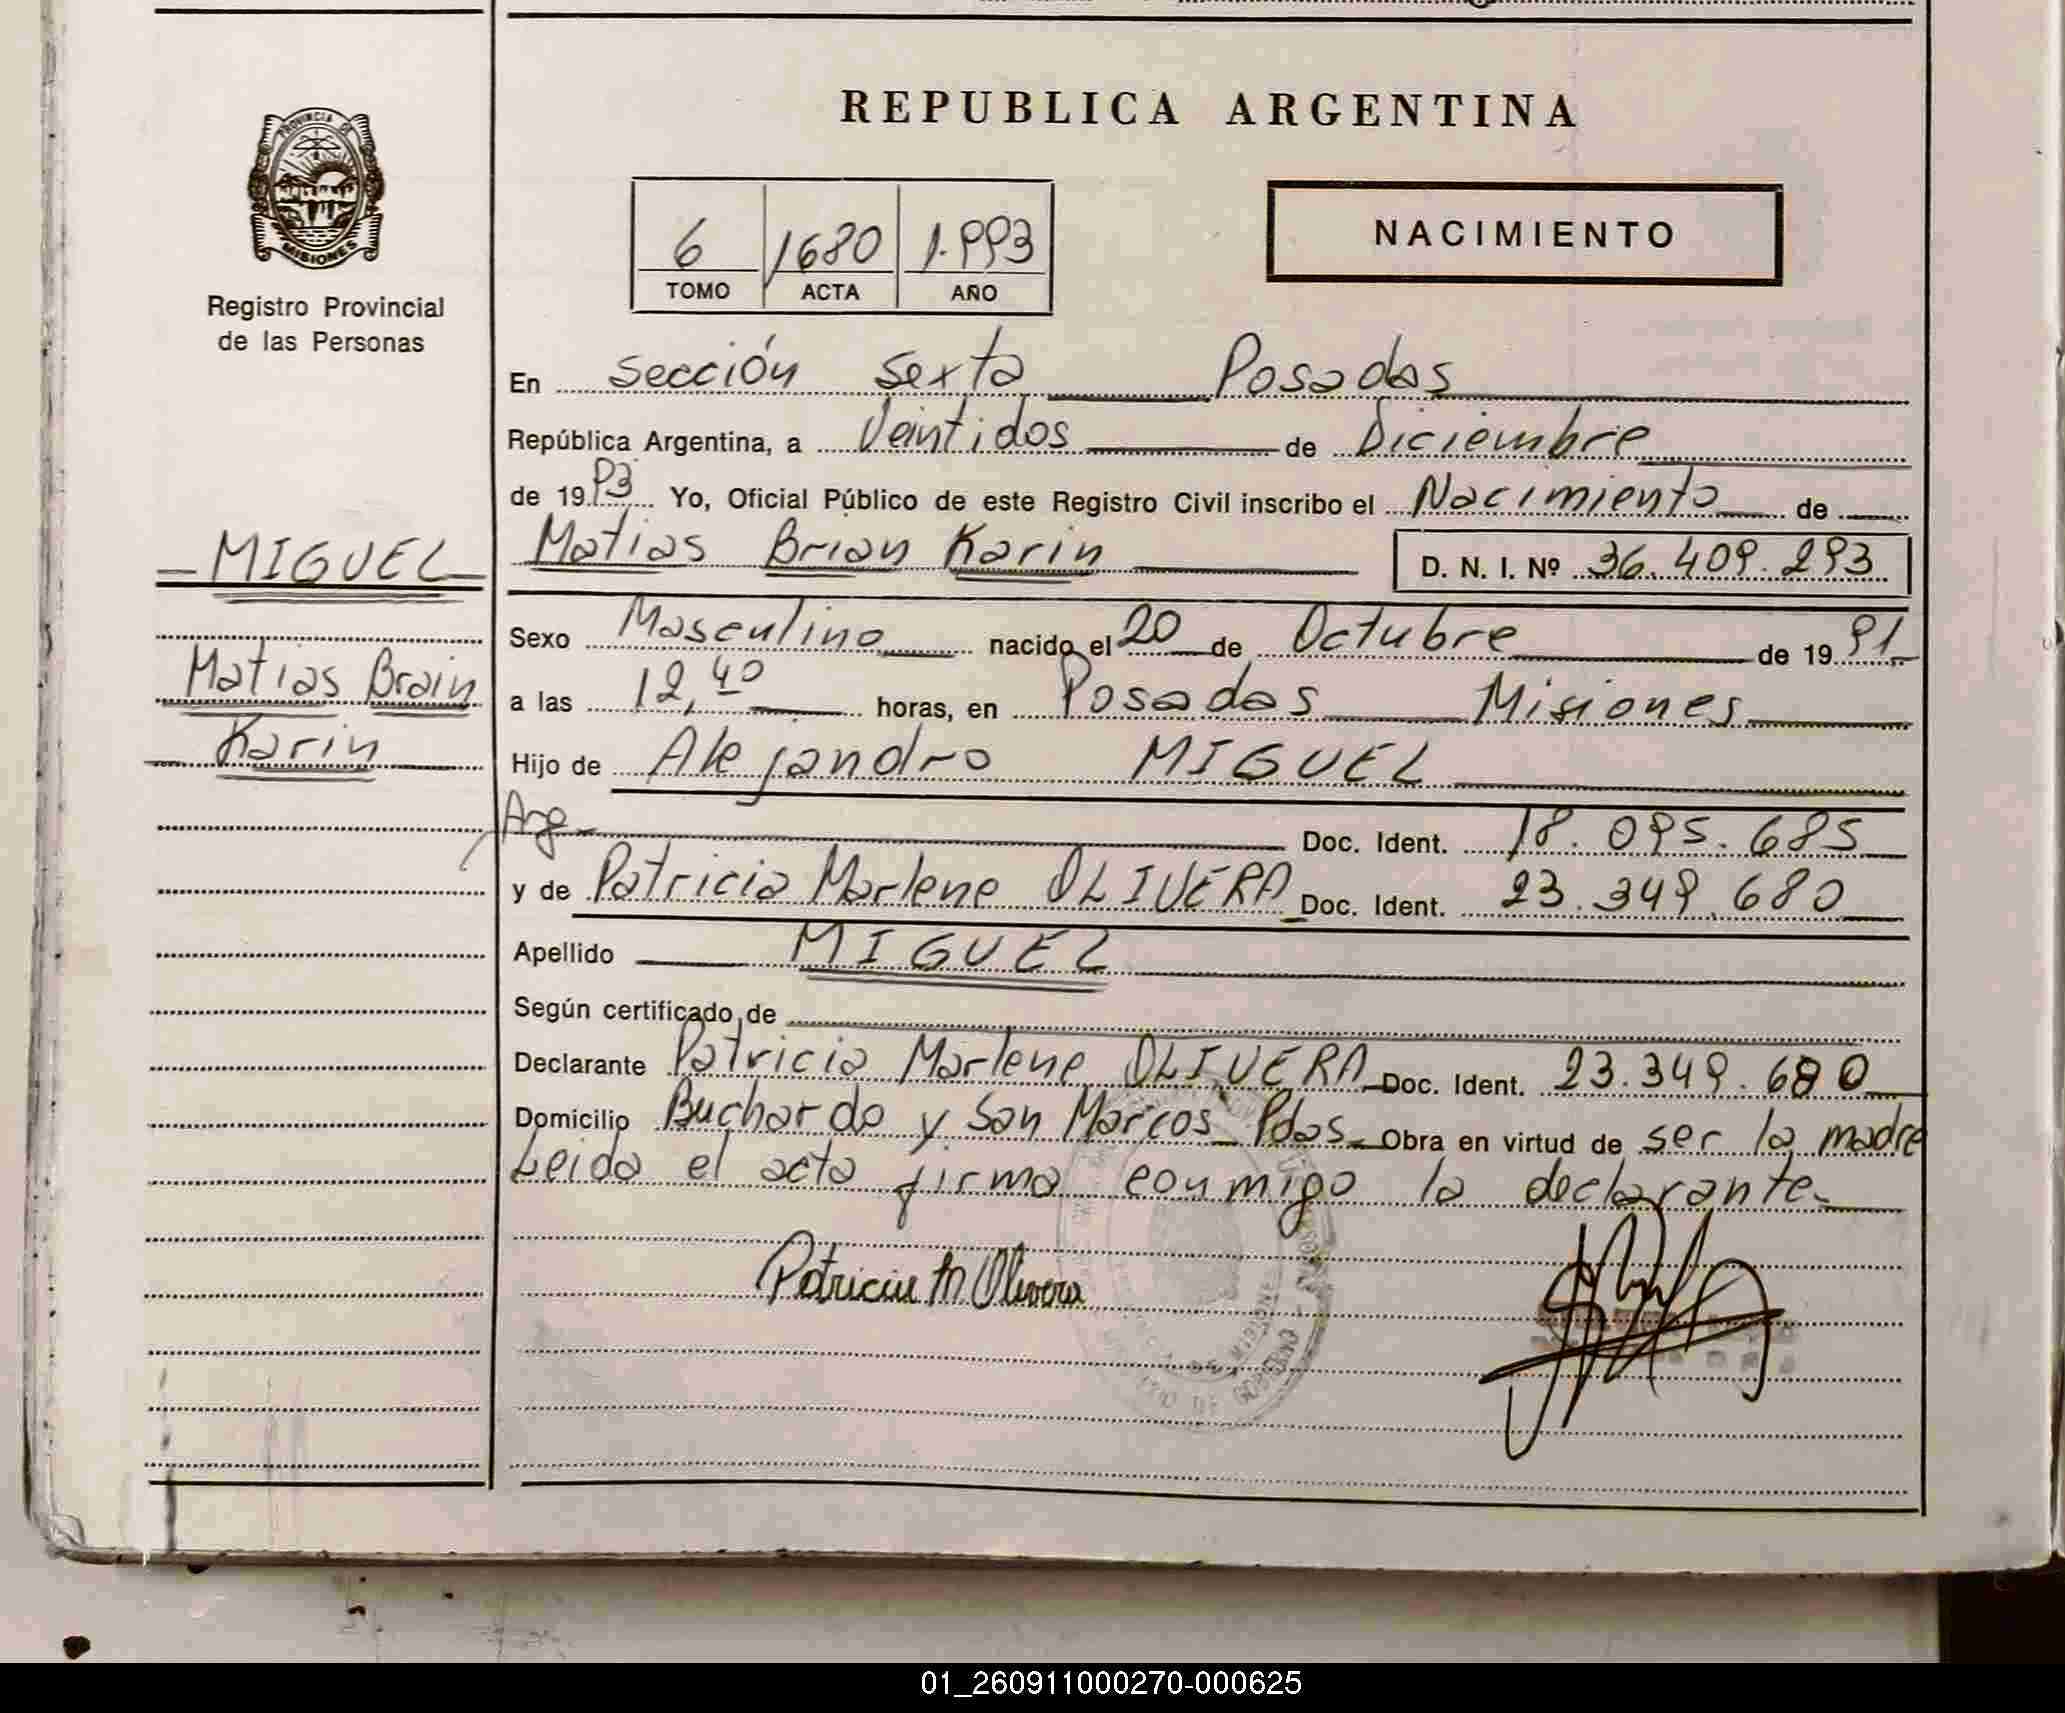 REPUBLICA ARGENTINA
PROVINCIA DE
MISIONES
Registro Provincial
de las Personas
NACIMIENTO
6 1680 1.993
TOMO ACTA AÑO
En sección sexta Posadas
República Argentina, a Veintidos de Diciembre
de 1993 Yo, Oficial Público de este Registro Civil inscribo el Nacimiento de
MIGUEL
Matias Brian Karin D. N. I. Nº 36.409.293
Sexo Masculino nacido el 20 de Octubre de 1991
Matias Brain
Karin
a las 12,40 horas, en Posadas Misiones
Hijo de Alejandro MIGUEL
Arg. Doc. Ident. 18.095.685
y de Patricia Marlene OLIVERA Doc. Ident. 23.349.680
Apellido MIGUEL
Según certificado de
Declarante Patricia Marlene OLIVERA Doc. Ident. 23.349.680
Domicilio Buchardo y San Marcos Pdas. Obra en virtud de ser la madre
Leida el acta firma conmigo la declarante.
Patricia M Olivera
01_260911000270-000625